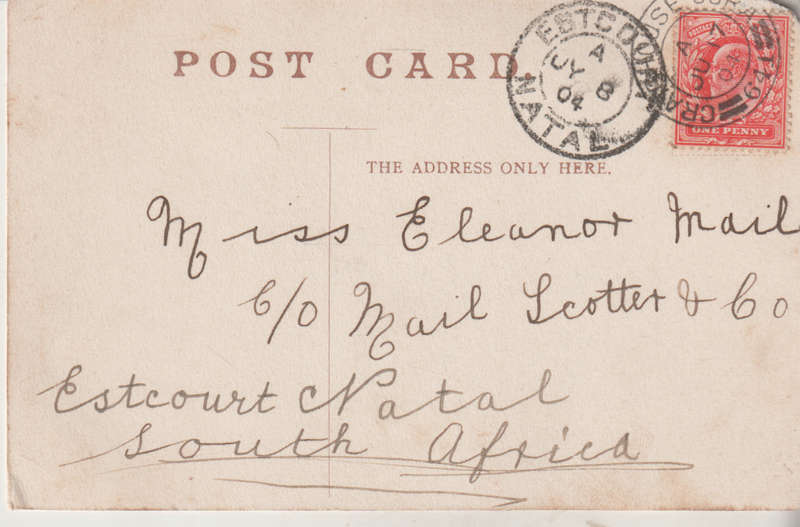 POST CARD.
ESTCOURT
A
JY 8
04
NATAL
ONE PENNY
THE ADDRESS ONLY HERE.
Miss Eleanor Mail
C/O Mail Scotter & Co
Estcourt Natal
South Africa